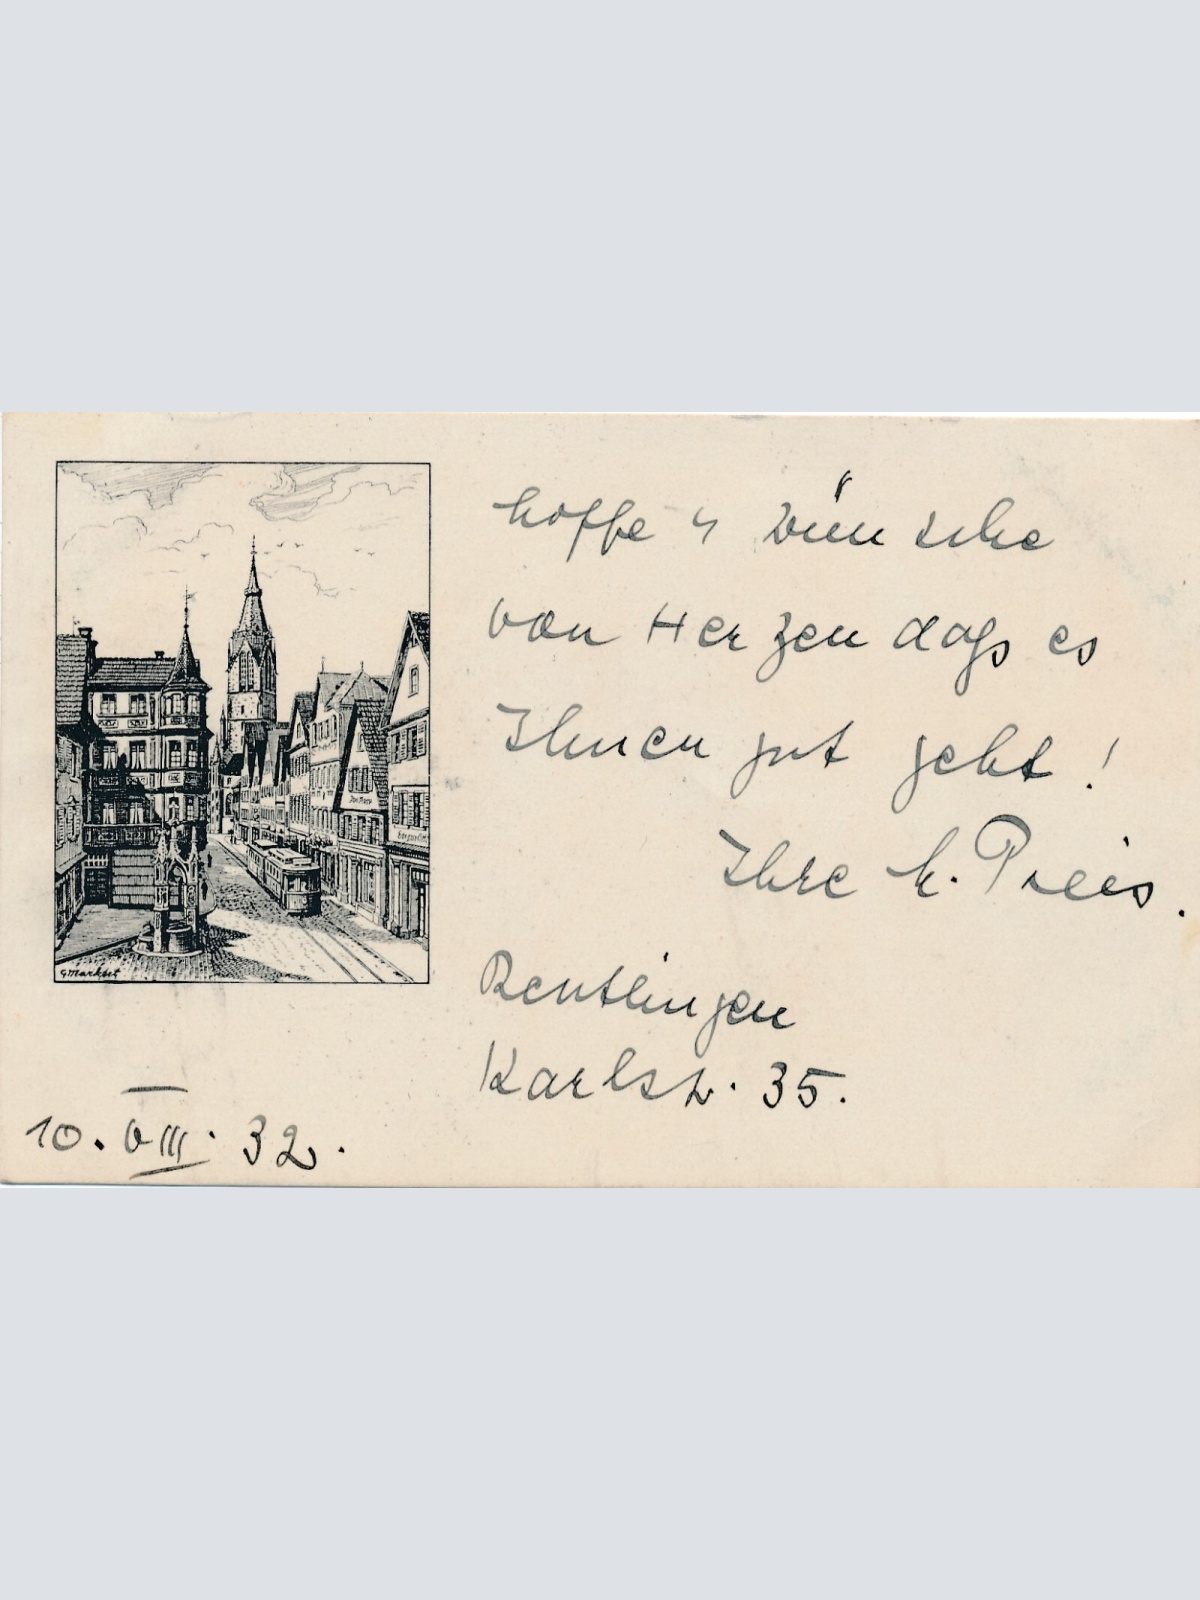 hoffe u wünsche
von Herzen dass es
Ihnen gut geht!
Ihre h. Preis.
Reutlingen
Karlstr. 35.
10. VIII. 32.